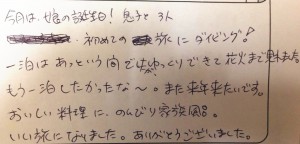 今月は、娘の誕生日！息子と3人
初めての旅にダイビング！
一泊はあっという間でゆっくりできて花火まで見れました
もう一泊したかったな〜。また来年来たいです。
おいしい料理に、のんびり家族風呂。
いい旅になりました。ありがとうございました。